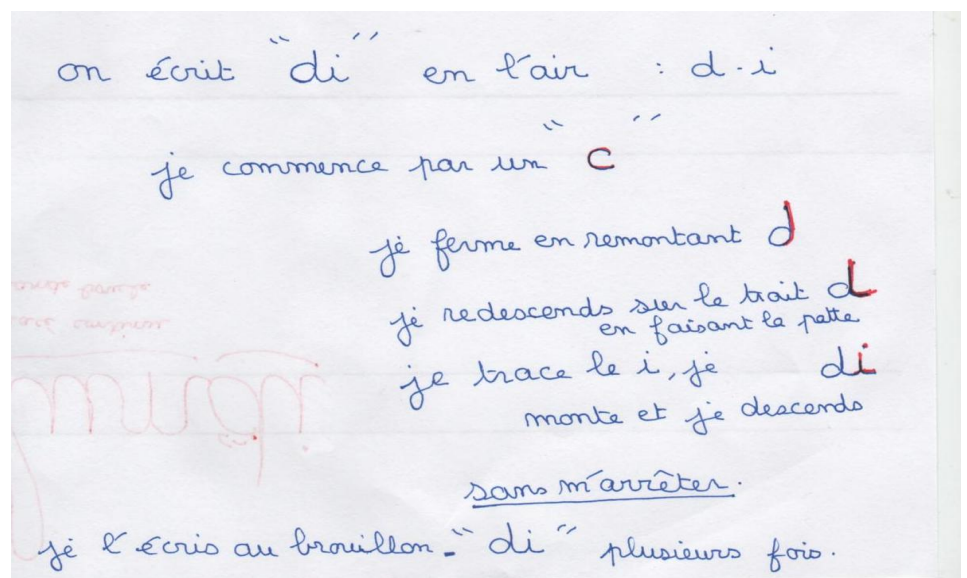 on écrit "di" en l'air : d-i
je commence par un "c"
je ferme en remontant d
je redescends sur le trait d
en faisant la patte
je trace le i, je di
monte et je descends
sans m'arrêter.
je l'écris au brouillon - "di" plusieurs fois.